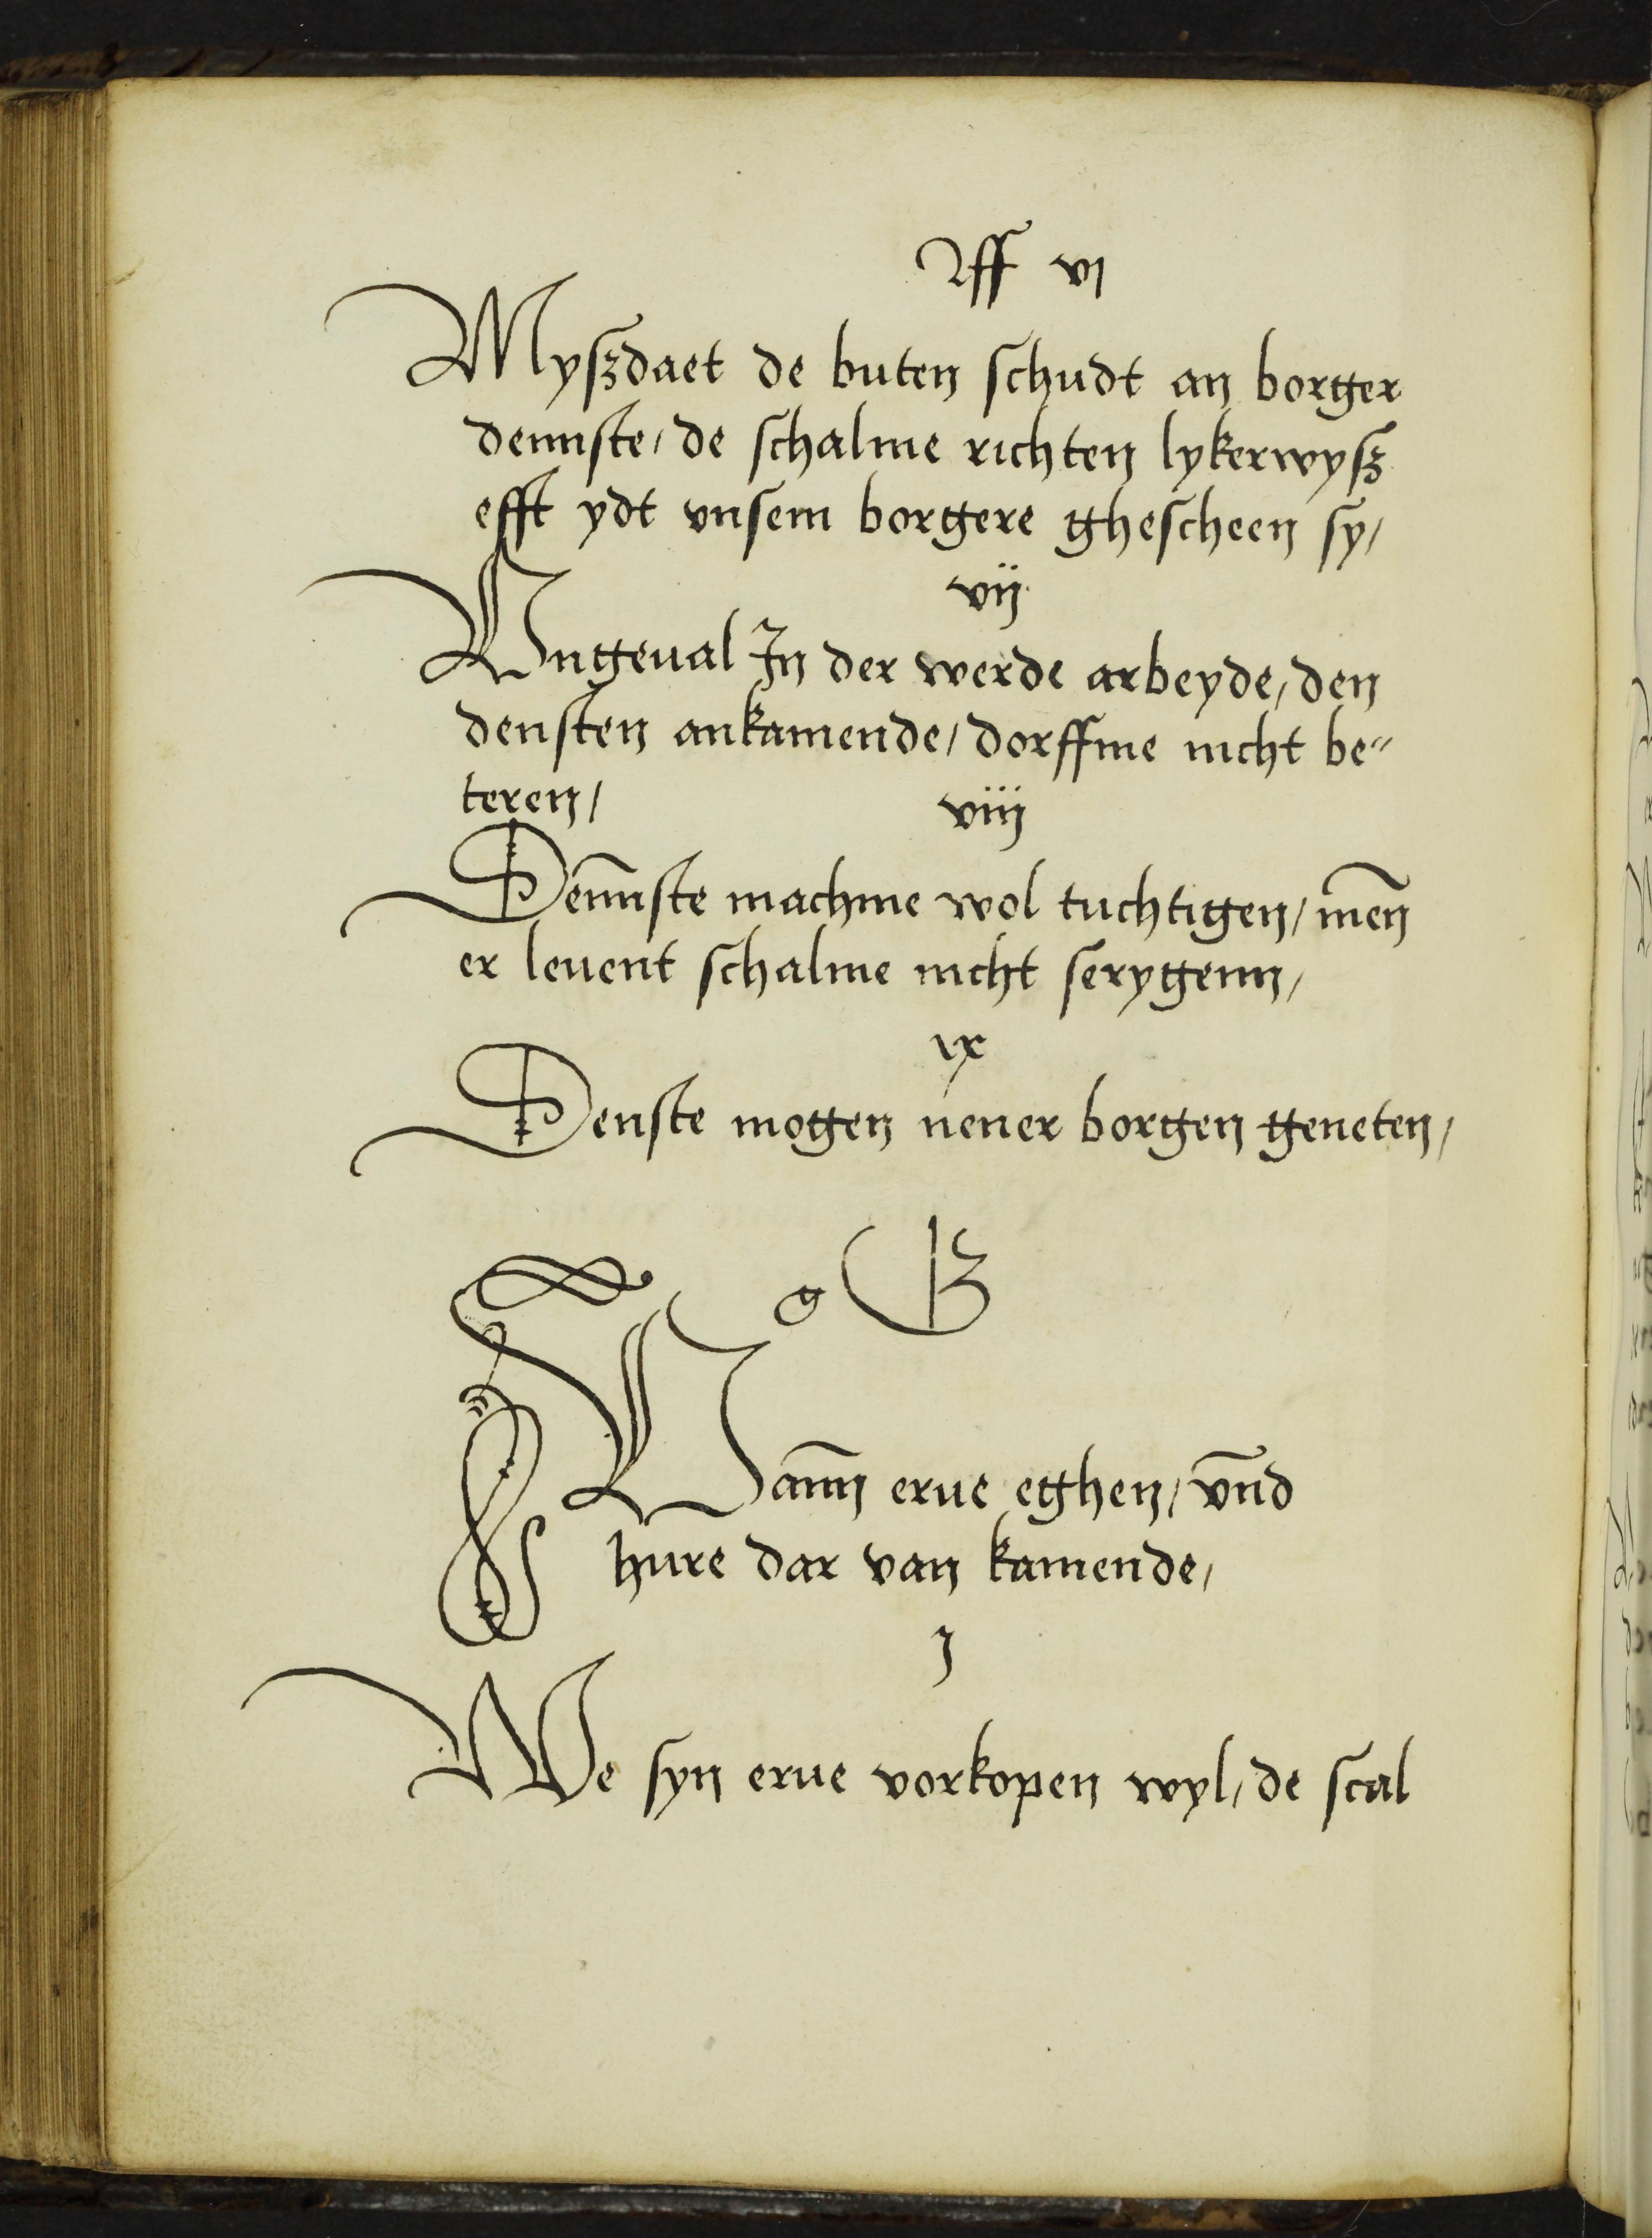 Aff vi
Myszdaet de buten schudt an borger
dennste, de schalme richten lykerwysz
efft ydt vnsem borgere ghescheen sy,
vij
Vngeual In der werde arbeyde, den
densten ankamende, dorffme nicht be-
teren,
viij
Den̄nste machme wol tuchtigen, men̄
er leuent schalme nicht serygenn,
ix
Denste mogen nener borgen geneten,
G
Vann erue eghen, vn̄d
hure dar van kamende,
j
We syn erue vorkopen wyl, de scal